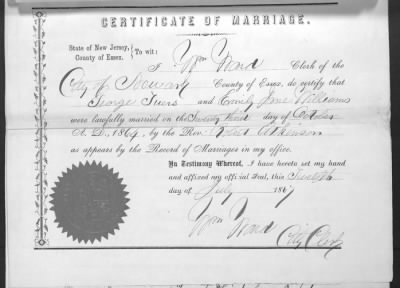 CERTIFICATE OF MARRIAGE.
State of New Jersey,
County of Essex.
To wit:
I Wm Wand Clerk of the
City of Newark County of Essex, do certify that
George Tuers and Emily Jane Williams
were lawfully married on the day of October
A. D. 1864, by the Rev. Atkinson
as appears by the Record of Marriages in my office.
In Testimony Whereof, I have hereto set my hand
and affixed my official Seal, this
day of July 1867
Wm Wand
City Clerk